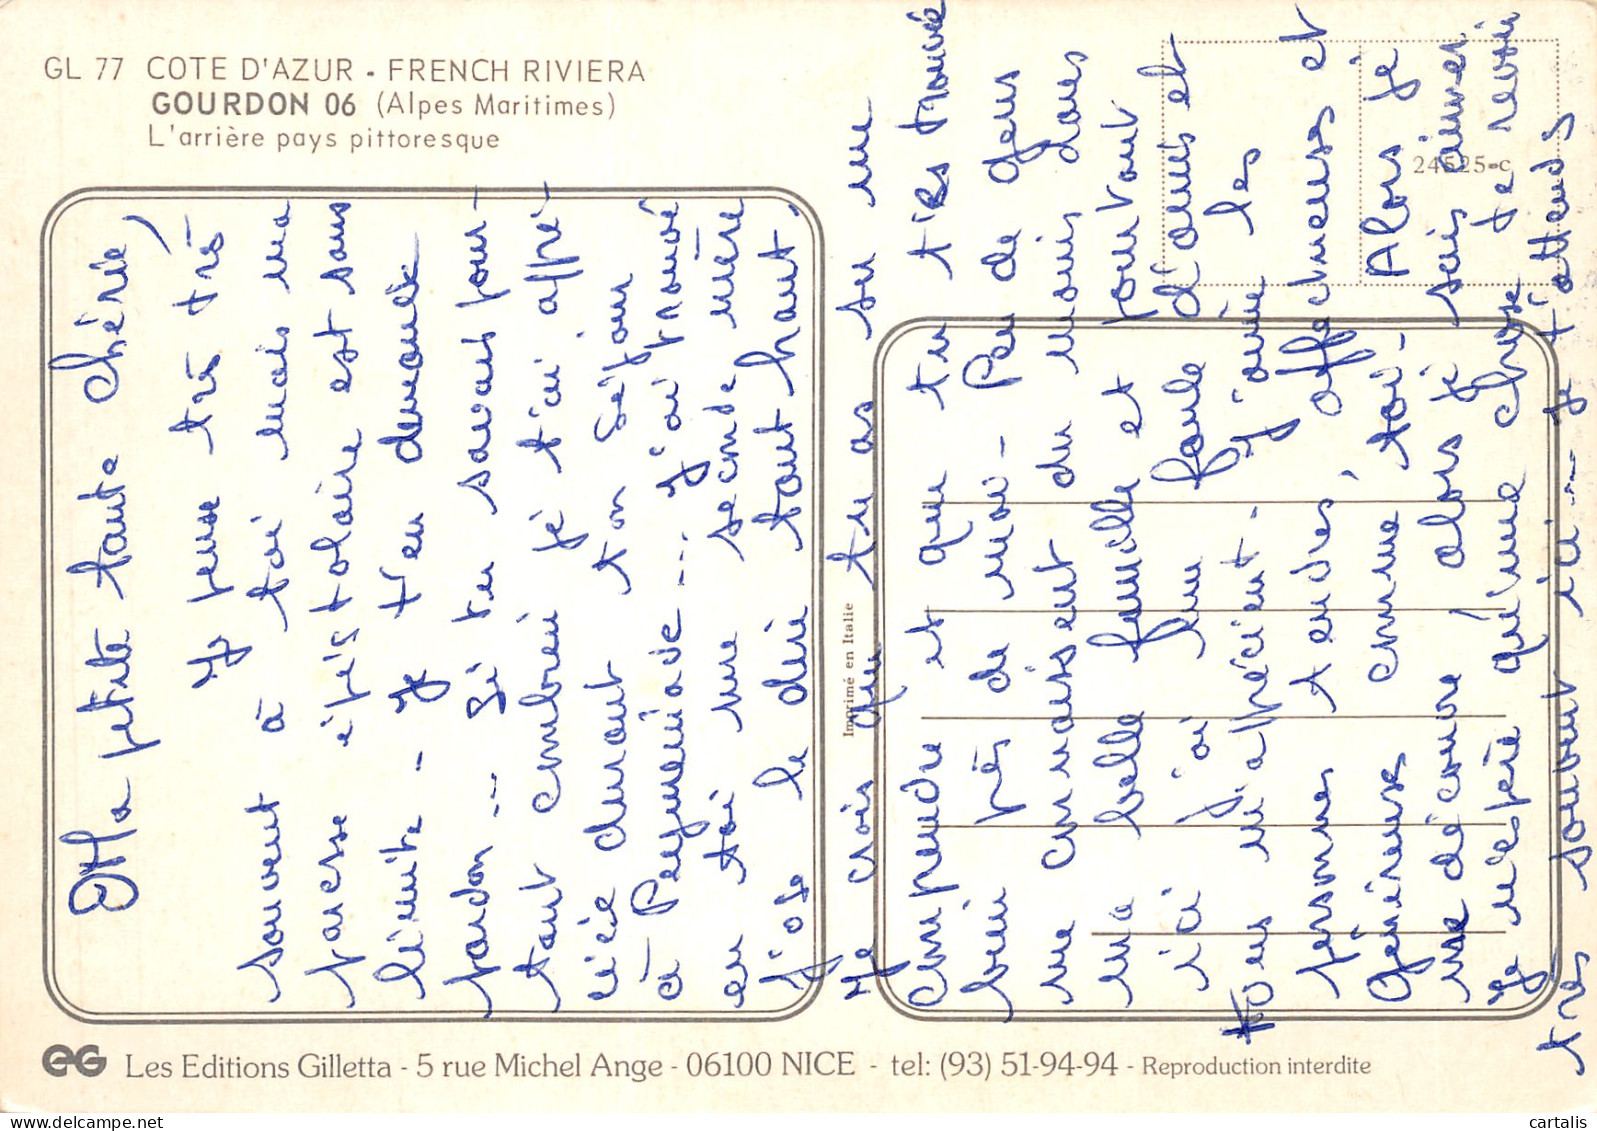 GL 77 COTE D'AZUR - FRENCH RIVIERA
GOURDON 06 (Alpes Maritimes)
L'arrière pays pittoresque
24525-c
Ma petite tante chérie,
Je pense très très
souvent à toi mais ma
paresse épistolaire est sans
limite - Je t'en demande
pardon -- Si tu savais pour-
tant combien je t'ai appré-
ciée durant ton séjour
à Peymeinade --- J'ai trouvé
en toi une seconde mère
J'ose le dire tout haut.
Je crois que tu as su me
comprendre et que tu t'es trouvée
bien près de moi - Peu de gens
me connaissent du moins dans
ma belle famille et pourtant
ici j'ai une foule d'amis et
tous m'apprécient - J'aime les
personnes tendres, affectueuses et
généreuses comme toi - Alors je
me découvre alors je sais aimer
Je n'espère qu'une chose te revoir
très souvent ici -- Je t'attends
Imprimé en Italie
eG Les Editions Gilletta - 5 rue Michel Ange - 06100 NICE - tel: (93) 51-94-94 - Reproduction interdite
cartalis